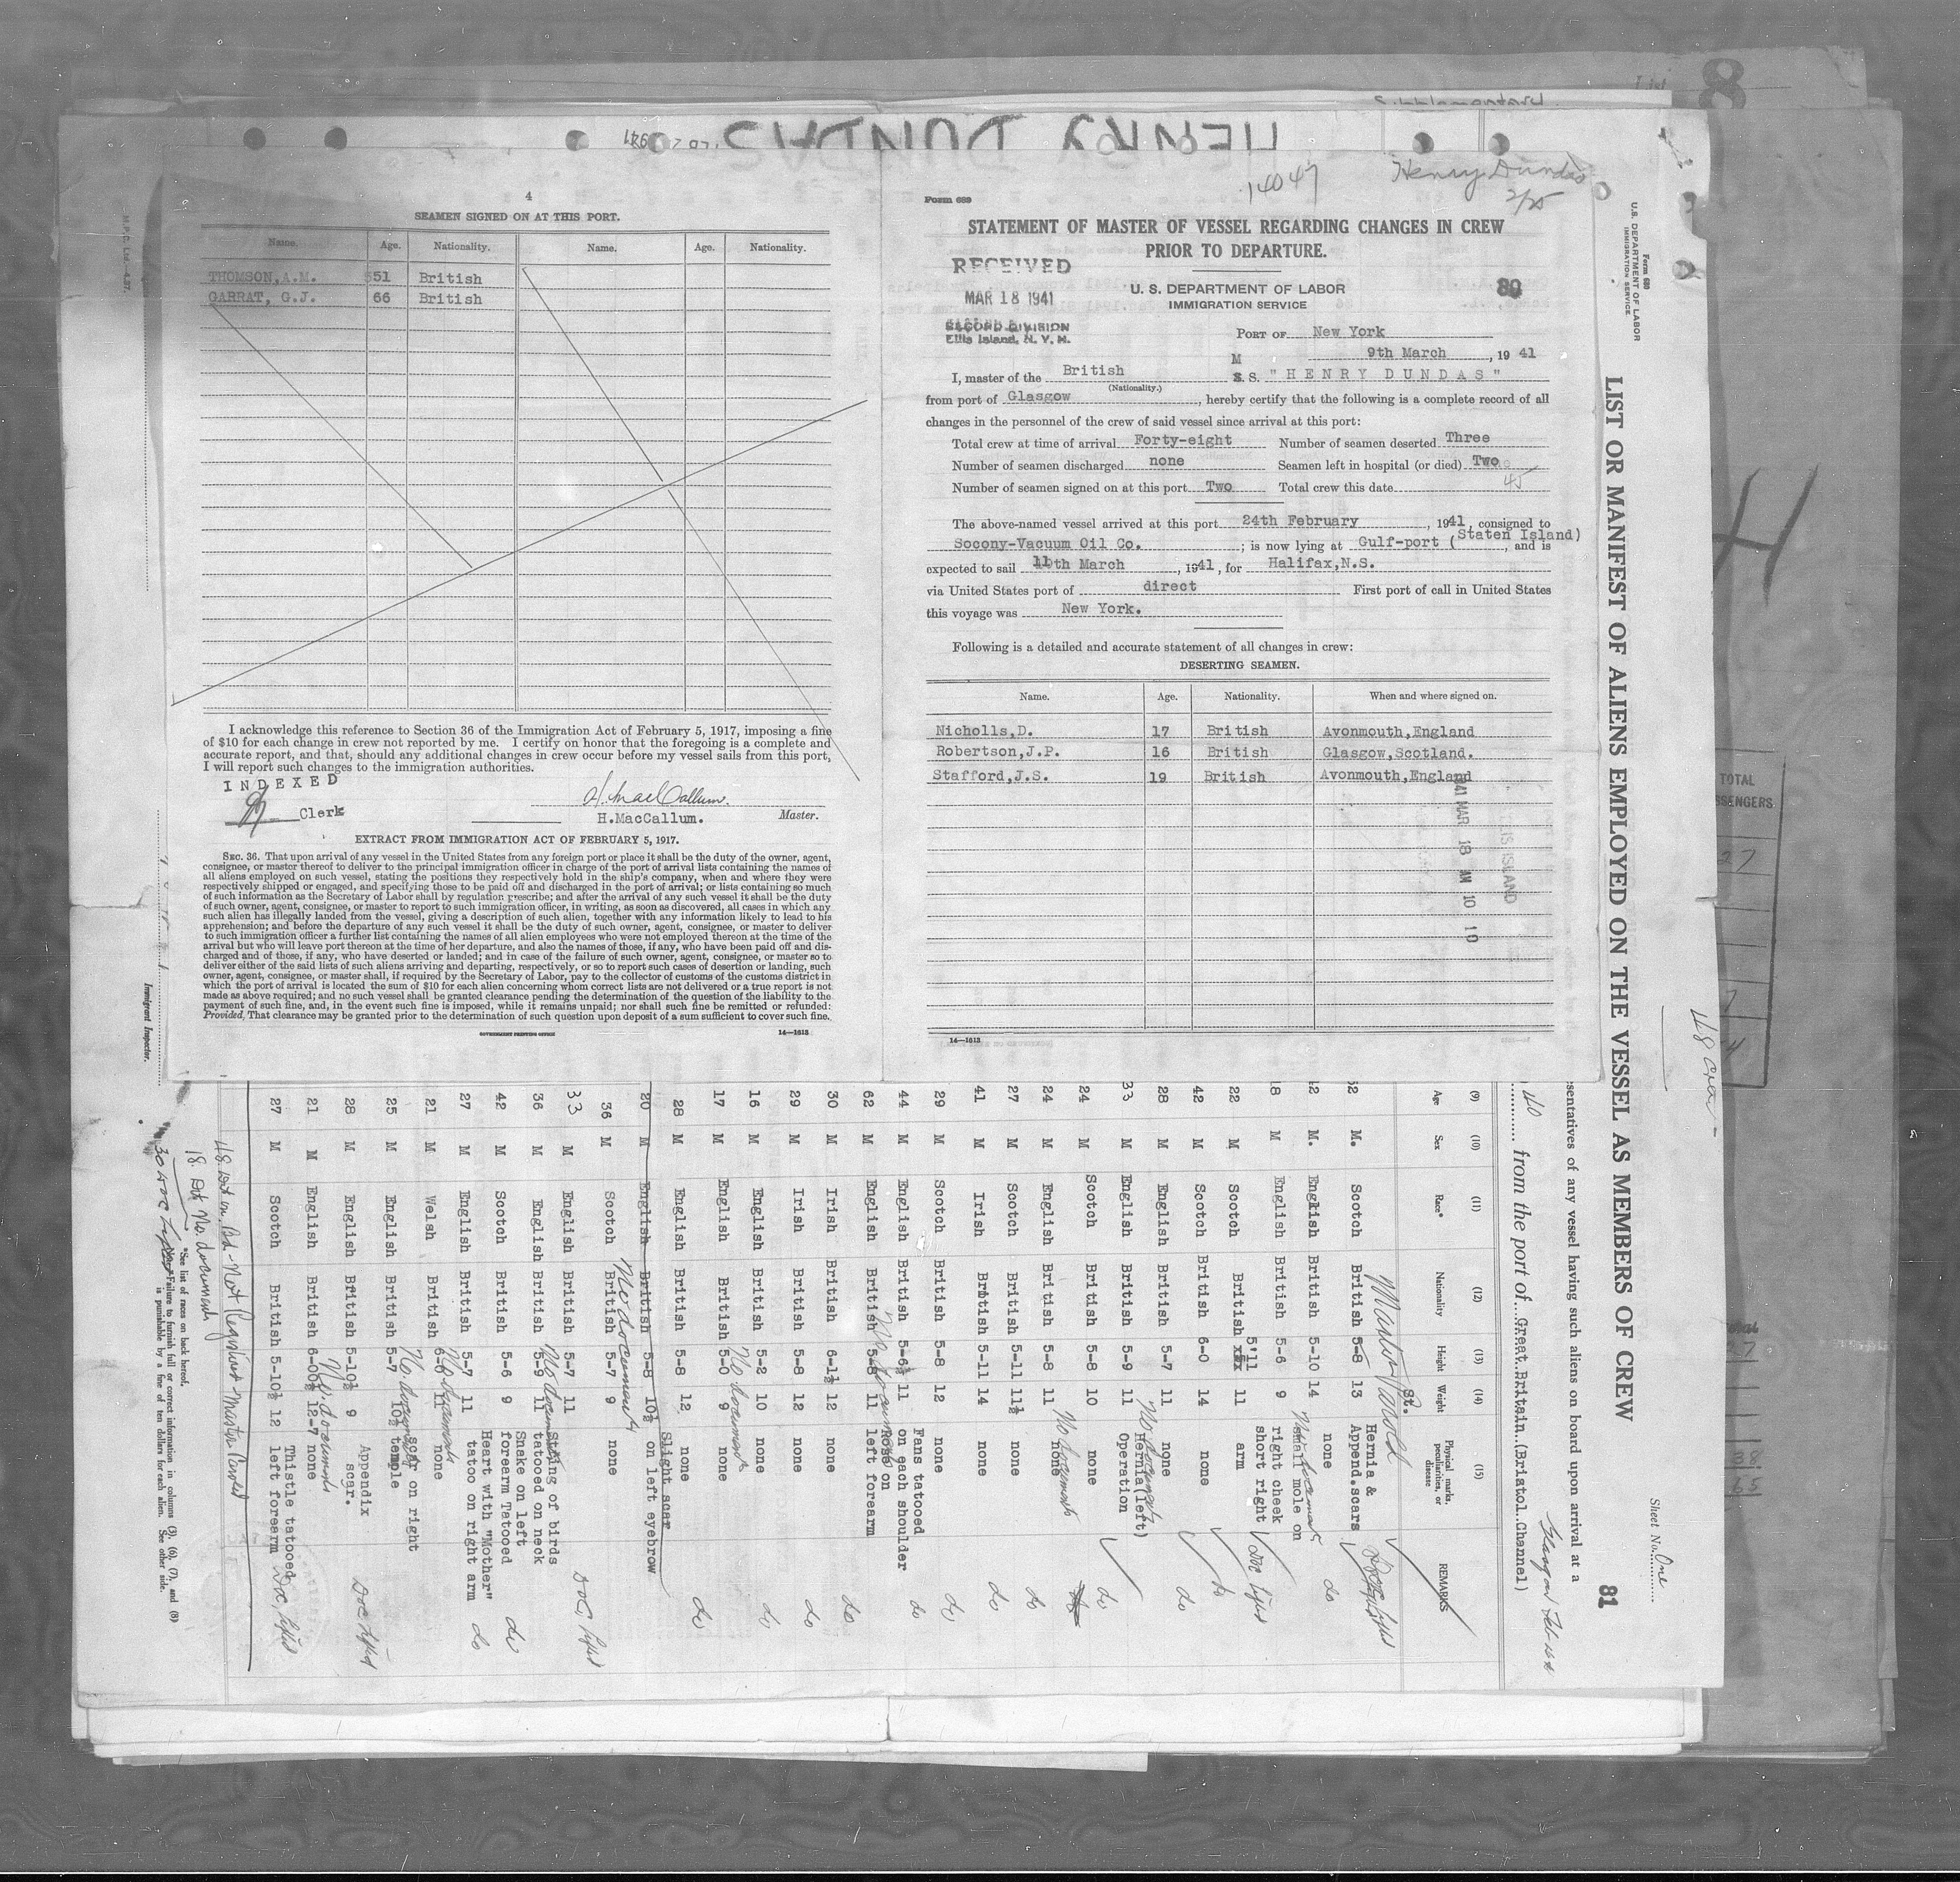 HENRY DUNDAS
14047
Henry Dundas
2/25
4
SEAMEN SIGNED ON AT THIS PORT.
Name. Age. Nationality. Name. Age. Nationality.
THOMSON,A.M. 51 British
GARRAT, G.J. 66 British
I acknowledge this reference to Section 36 of the Immigration Act of February 5, 1917, imposing a fine
of $10 for each change in crew not reported by me. I certify on honor that the foregoing is a complete and
accurate report, and that, should any additional changes in crew occur before my vessel sails from this port,
I will report such changes to the immigration authorities.
INDEXED
Clerk
H. MacCallum.
H.MacCallum. Master.
EXTRACT FROM IMMIGRATION ACT OF FEBRUARY 5, 1917.
SEC. 36. That upon arrival of any vessel in the United States from any foreign port or place it shall be the duty of the owner, agent,
consignee, or master thereof to deliver to the principal immigration officer in charge of the port of arrival lists containing the names of
all aliens employed on such vessel, stating the positions they respectively hold in the ship's company, when and where they were
respectively shipped or engaged, and specifying those to be paid off and discharged in the port of arrival; or lists containing so much
of such information as the Secretary of Labor shall by regulation prescribe; and after the arrival of any such vessel it shall be the duty
of such owner, agent, consignee, or master to report to such immigration officer, in writing, as soon as discovered, all cases in which any
such alien has illegally landed from the vessel, giving a description of such alien, together with any information likely to lead to his
apprehension; and before the departure of any such vessel it shall be the duty of such owner, agent, consignee, or master to deliver
to such immigration officer a further list containing the names of all alien employees who were not employed thereon at the time of the
arrival but who will leave port thereon at the time of her departure, and also the names of those, if any, who have been paid off and dis-
charged and of those, if any, who have deserted or landed; and in case of the failure of such owner, agent, consignee, or master so to
deliver either of the said lists of such aliens arriving and departing, respectively, or so to report such cases of desertion or landing, such
owner, agent, consignee, or master shall, if required by the Secretary of Labor, pay to the collector of customs of the customs district in
which the port of arrival is located the sum of $10 for each alien concerning whom correct lists are not delivered or a true report is not
made as above required; and no such vessel shall be granted clearance pending the determination of the question of the liability to the
payment of such fine, and, in the event such fine is imposed, while it remains unpaid; nor shall such fine be remitted or refunded:
Provided, That clearance may be granted prior to the determination of such question upon deposit of a sum sufficient to cover such fine.
GOVERNMENT PRINTING OFFICE 14—1613
Form 689
STATEMENT OF MASTER OF VESSEL REGARDING CHANGES IN CREW
PRIOR TO DEPARTURE.
RECEIVED
MAR 18 1941
RECORD DIVISION
Ellis Island, N. Y. H.
U. S. DEPARTMENT OF LABOR
IMMIGRATION SERVICE
80
PORT OF New York
9th March, 1941
I, master of the British M S. S. "HENRY DUNDAS"
(Nationality.)
from port of Glasgow, hereby certify that the following is a complete record of all
changes in the personnel of the crew of said vessel since arrival at this port:
Total crew at time of arrival Forty-eight Number of seamen deserted Three
Number of seamen discharged none Seamen left in hospital (or died) Two
Number of seamen signed on at this port Two Total crew this date 45
The above-named vessel arrived at this port 24th February, 1941, consigned to
Socony-Vacuum Oil Co.; is now lying at Gulf-port (Staten Island), and is
expected to sail 11th March, 1941, for Halifax,N.S.
via United States port of direct First port of call in United States
this voyage was New York.
Following is a detailed and accurate statement of all changes in crew:
DESERTING SEAMEN.
Name. Age. Nationality. When and where signed on.
Nicholls,D. 17 British Avonmouth,England
Robertson,J.P. 16 British Glasgow,Scotland.
Stafford,J.S. 19 British Avonmouth,England
1941 MAR 18 AM 10 10
14—1613
Form 680
U.S. DEPARTMENT OF LABOR
IMMIGRATION SERVICE
LIST OR MANIFEST OF ALIENS EMPLOYED ON THE VESSEL AS MEMBERS OF CREW
81
Sheet No. One
48 crew
esentatives of any vessel having such aliens on board upon arrival at a
from the port of Great Britain (Bristol Channel)
(9) (10) (11) (12) (13) (14) (15)
Age Sex Race* Nationality Height Weight Physical marks, peculiarities, or disease REMARKS
St.
52 M. Scotch British 5-8 13 Hernia & Append.scars
42 M. English British 5-10 14 none do
18 M English British 5-6 9 small mole on right cheek
22 M Scotch British 5'11 11 short right arm
42 M Scotch British 6-0 14 none do
28 M English British 5-7 11 none do
33 M English British 5-9 11 Hernia(left) Operation
24 M Scotch British 5-8 10 none do
24 M English British 5-8 11 none No documents
27 M Scotch British 5-11 11½ none do
41 M Irish British 5-11 14 none do
29 M Scotch British 5-8 12 none do
44 M English British 5-6½ 11 Fans tatooed on each shoulder do
62 M English British 5-8 11 Rose on left forearm
30 M Irish British 6-1½ 12 none do
29 M Irish British 5-8 12 none do
16 M English British 5-2 10 none do
17 M English British 5-0 9 none No documents
28 M English British 5-8 12 none do
20 M English British 5-8 10½ Slight scar on left eyebrow
36 M Scotch British 5-7 9 none No documents
33 M English British 5-7 11 String of birds tatooed on neck
36 M English British 5-9 11 Snake on left forearm Tatooed
42 M Scotch British 5-6 9 Heart with "Mother" do
27 M English British 5-7 11 tatoo on right arm do
21 M Welsh British 6-0 11 none No documents
25 M English British 5-7 10½ scar on right temple No documents
28 M English British 5-10½ 9 Appendix scar.
21 M English British 6-00½ 12-7 none No documents
27 M Scotch British 5-10½ 12 Thistle tatooed left forearm
18 No documents
*See list of races on back hereof.
NOTE.—Failure to furnish full or correct information in columns (3), (6), (7), and (8)
is punishable by a fine of ten dollars for each alien. See other side.
Immigrant Inspector.
TOTAL
8